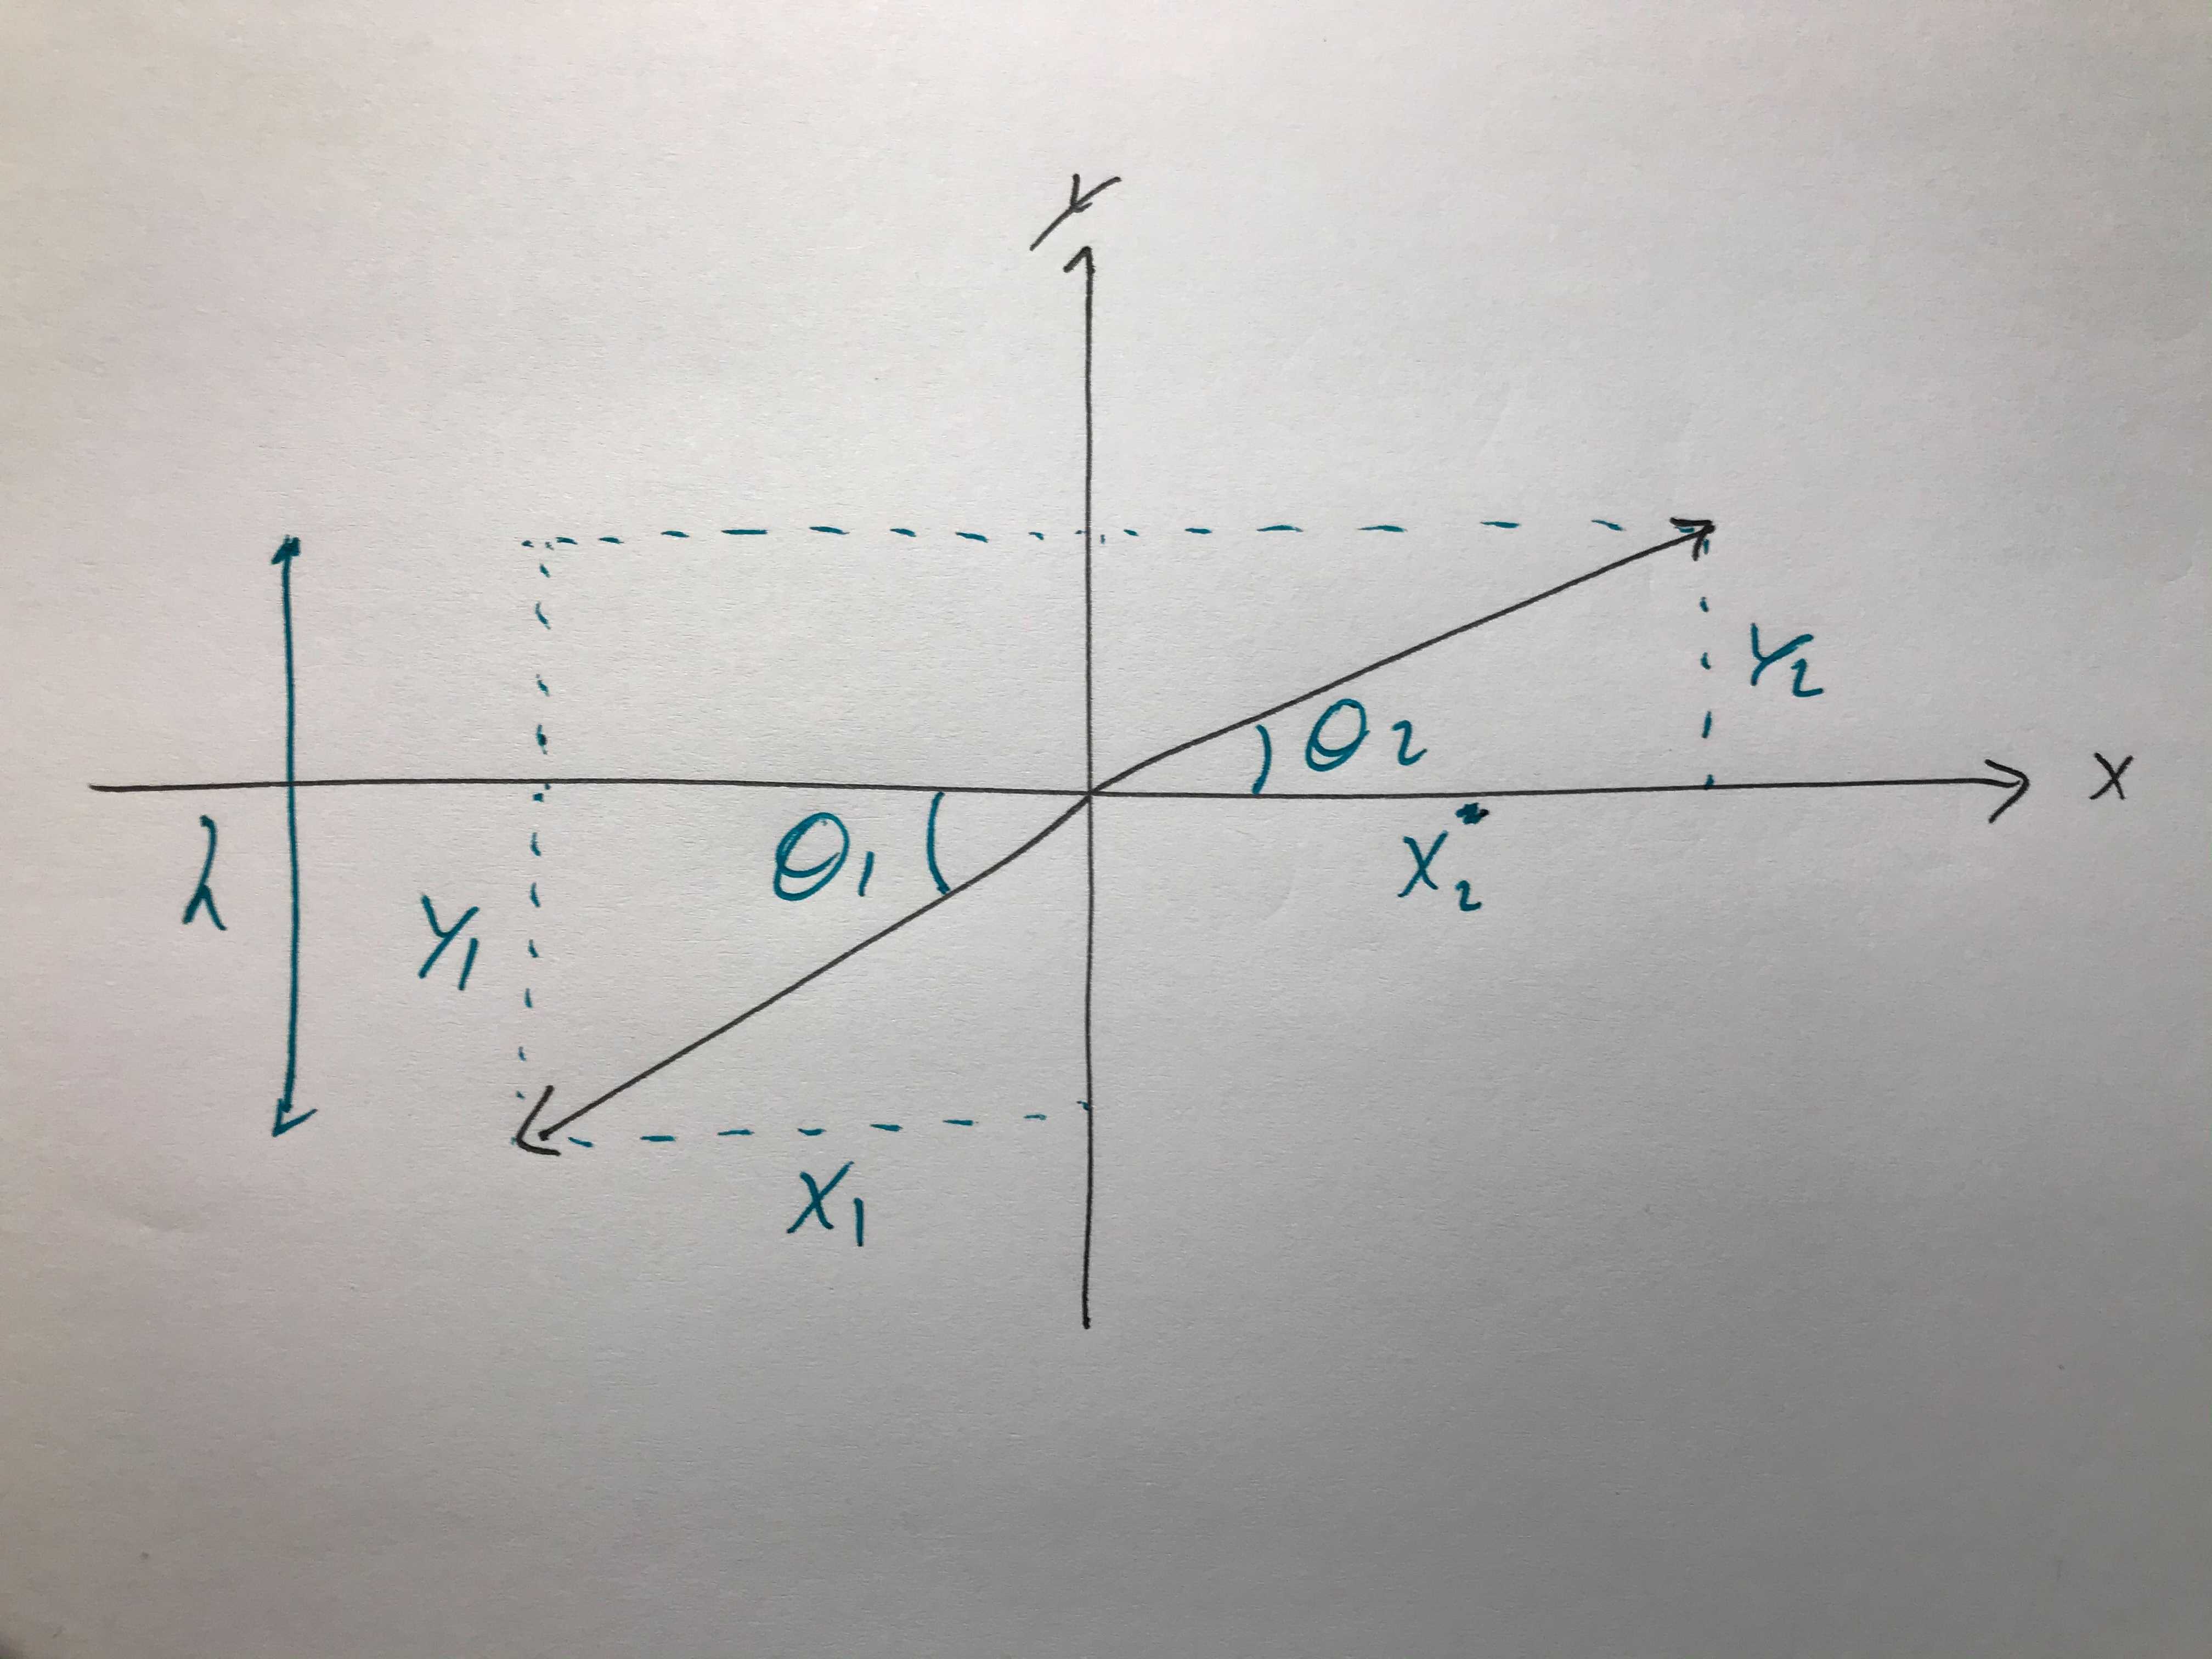 Y
Y₂
θ₂
X
λ
θ₁
X₂*
Y₁
X₁